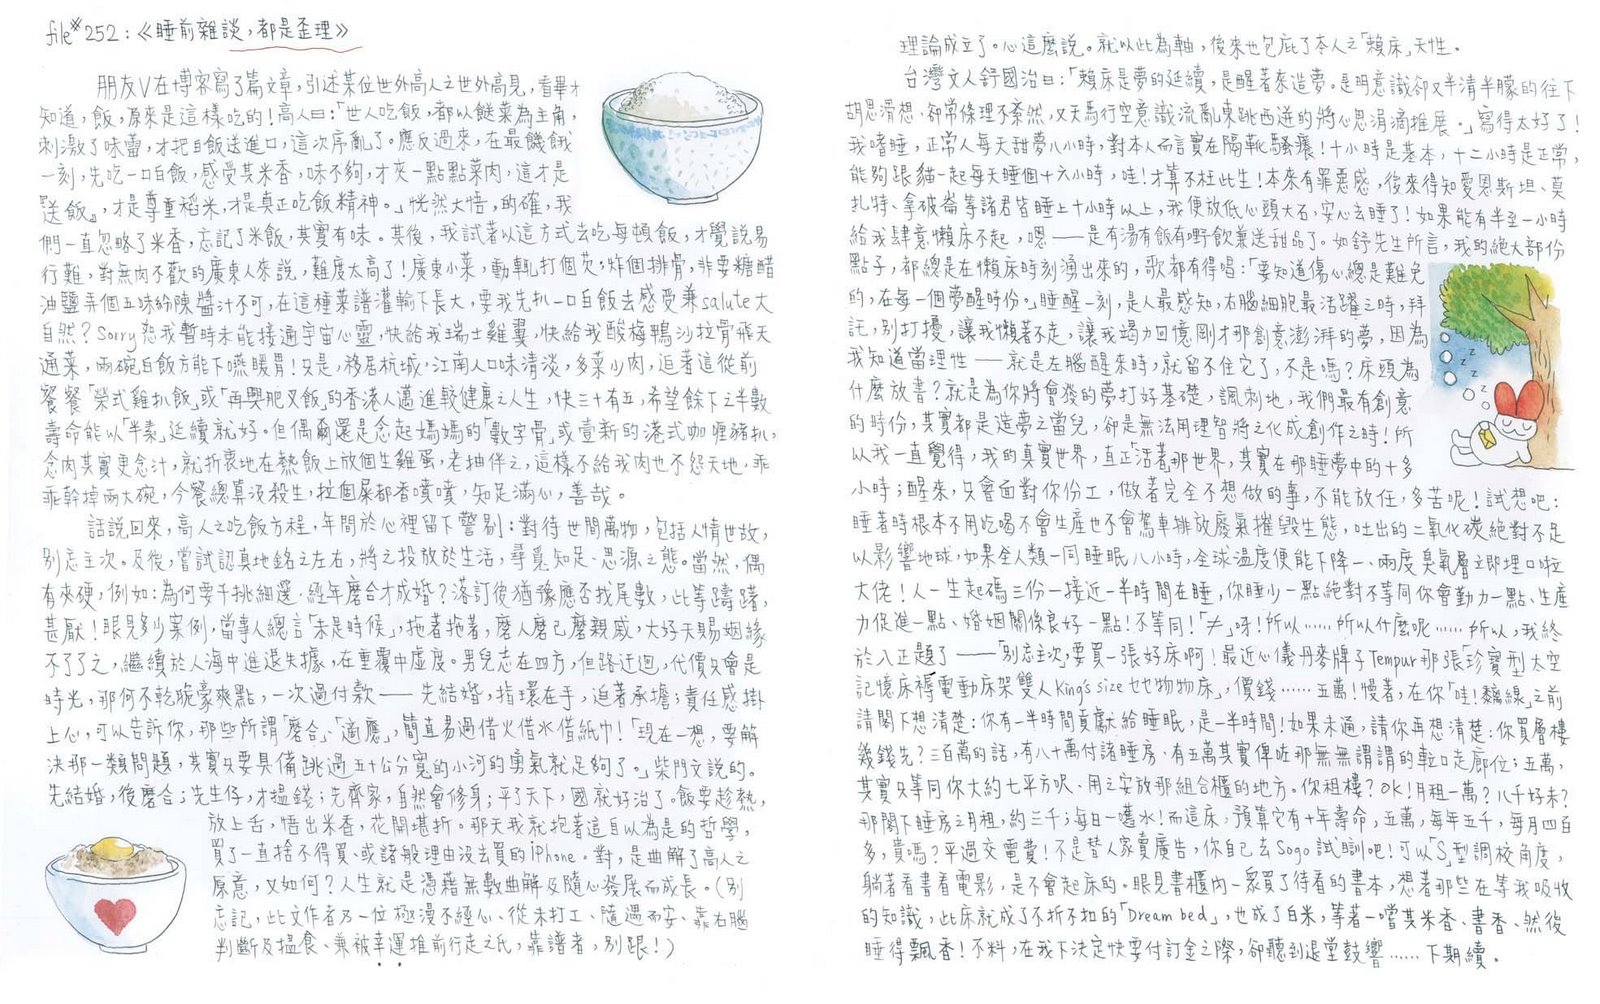 file#252:《睡前雜談,都是歪理》
朋友V在博客寫了篇文章,引述某位世外高人之世外高見,看畢才
知道,飯,原來是這樣吃的!高人曰:「世人吃飯,都以餸菜為主角,
刺激了味蕾,才把白飯送進口,這次序亂了。應反過來,在最饑餓
一刻,先吃一口白飯,感受其米香,味不夠,才夾一點點菜肉,這才是
『送飯』,才是尊重稻米,才是真正吃飯精神。」恍然大悟,的確,我
們一直忽略了米香,忘記了米飯,其實有味。其後,我試著以這方式去吃每頓飯,才覺說易
行難,對無肉不歡的廣東人來說,難度太高了!廣東小菜,動輒打個芡,炸個排骨,非要糖醋
油鹽弄個五味的陳醬汁不可,在這種菜譜灌輸下長大,要我先扒一口白飯去感受兼salute大
自然?Sorry恕我暫時未能接通宇宙心靈,快給我瑞士雞翼,快給我酸梅鴨沙拉骨飛天
通菜,兩碗白飯方能下嚥暖胃!只是,移居杭城,江南人口味清淡,多菜少肉,迫著這從前
餐餐「榮式雞扒飯」或「再興肥叉飯」的香港人邁進較健康之人生,快三十有五,希望餘下之半數
壽命能以「半素」延續就好。但偶爾還是念起媽媽的「數字骨」或壹新的港式咖喱豬扒,
念肉其實更念汁,就折衷地在熱飯上放個生雞蛋,老抽伴之,這樣不給我肉也不怨天地,乖
乖幹掉兩大碗,今餐總算沒殺生,拉個屎都香噴噴,知足滿心,善哉。
話說回來,高人之吃飯方程,年間於心裡留下警剔:對待世間萬物,包括人情世故,
別忘主次。及後,嘗試認真地銘之左右,將之投放於生活,尋覓知足、思源之態。當然,偶
有來硬,例如:為何要千挑細選、經年磨合才成婚?落訂後猶豫應否找尾數,此等躊躇,
甚厭!眼見多少案例,當事人總言「未是時候」,拖著拖著,磨人磨己磨親戚,大好天賜姻緣
不了了之,繼續於人海中進退失據,在重覆中虛度。男兒志在四方,但路迂迴,代價只會是
時光,那何不乾脆豪爽點,一次過付款——先結婚,指環在手,迫著承擔;責任感掛
上心,可以告訴你,那些所謂「磨合」、「適應」,簡直易過借火借水借紙巾!「現在一想,要解
決那一類問題,其實只要具備跳過五十公分寬的小河的勇氣就足夠了。」柴門文說的。
先結婚,後磨合;先生仔,才搵錢;先齊家,自然會修身;平了天下,國就好治了。飯要趁熱,
放上舌,悟出米香,花開堪折。那天我就抱著這自以為是的哲學,
買了一直捨不得買、或諸般理由沒去買的iPhone。對,是曲解了高人之
原意,又如何?人生就是憑藉無數曲解及隨心發展而成長。(別
忘記,此文作者乃一位極漫不經心、從未打工、隨遇而安、靠右腦
判斷及搵食、兼被幸運推前行走之氏,靠譜者,別跟!)
理論成立了。心這麼說。就以此為軸,後來也包庇了本人之「賴床」天性。
台灣文人舒國治曰:「賴床是夢的延續,是醒著來造夢。是明意識卻又半清半朦的往下
胡思滑想,卻常條理不紊然,又天馬行空意識流亂東跳西迸的將心思涓滴推展。」寫得太好了!
我嗜睡,正常人每天甜夢八小時,對本人而言實在隔靴騷癢!十小時是基本,十二小時是正常,
能夠跟貓一起每天睡個十六小時,哇!才算不枉此生!本來有罪惡感,後來得知愛恩斯坦、莫
扎特、拿破崙等諸君皆睡上十小時以上,我便放低心頭大石,安心去睡了!如果能有半至一小時
給我肆意懶床不起,嗯——是有湯有飯有嘢飲兼送甜品了。如舒先生所言,我的絕大部份
點子,都總是在懶床時刻湧出來的,歌都有得唱:「要知道傷心總是難免
的,在每一個夢醒時份。」睡醒一刻,是人最感知,右腦細胞最活躍之時,拜
託,別打擾,讓我懶著不走,讓我竭力回憶剛才那創意澎湃的夢,因為
我知道當理性——就是左腦醒來時,就留不住它了,不是嗎?床頭為
什麼放書?就是為你將會發的夢打好基礎,諷刺地,我們最有創意
的時份,其實都是造夢之當兒,卻是無法用理智將之化成創作之時!所
以我一直覺得,我的真實世界,真正「活著」那世界,其實在那睡夢中的十多
小時;醒來,只會面對你份工,做著完全不想做的事,不能放任,多苦呢!試想吧:
睡著時根本不用吃喝不會生產也不會駕車排放廢氣摧毀生態,吐出的二氧化碳絕對不足
以影響地球,如果全人類一同睡眠八小時,全球溫度便能下降一、兩度臭氧層立即埋口啦
大佬!人一生起碼三份一接近一半時間在睡,你睡少一點絕對不等同你會勤力一點、生產
力促進一點、婚姻關係良好一點!不等同!「≠」呀!所以……所以什麼呢……所以,我終
於入正題了——「別忘主次」,要買一張好床啊!最近心儀丹麥牌子Tempur那張「珍寶型太空
記憶床褥電動床架雙人King's size乜乜物物床」,價錢……五萬!慢著,在你「哇!黐線」之前
請閣下想清楚:你有一半時間貢獻給睡眠,是一半時間!如果未通,請你再想清楚:你買層樓
幾錢先?三百萬的話,有八十萬付諸睡房、有五萬其實俾咗那無無謂謂的轉口走廊位;五萬,
其實只等同你大約七平方呎、用之安放那組合櫃的地方。你租樓?OK!月租一萬?八千好未?
那閣下睡房之月租,約三千;每日一嚿水!而這床,預算它有十年壽命,五萬,每年五千,每月四百
多,貴嗎?平過交電費!不是替人家賣廣告,你自己去Sogo試瞓吧!可以「S」型調校角度,
躺著看書看電影,是不會起床的。眼見書櫃內一眾買了待看的書本,想著那些在等我吸收
的知識,此床就成了不折不扣的「Dream bed」,也成了白米,等著一嚐其米香、書香、然後
睡得飄香!不料,在我下決定快要付訂金之際,卻聽到退堂鼓響……下期續。